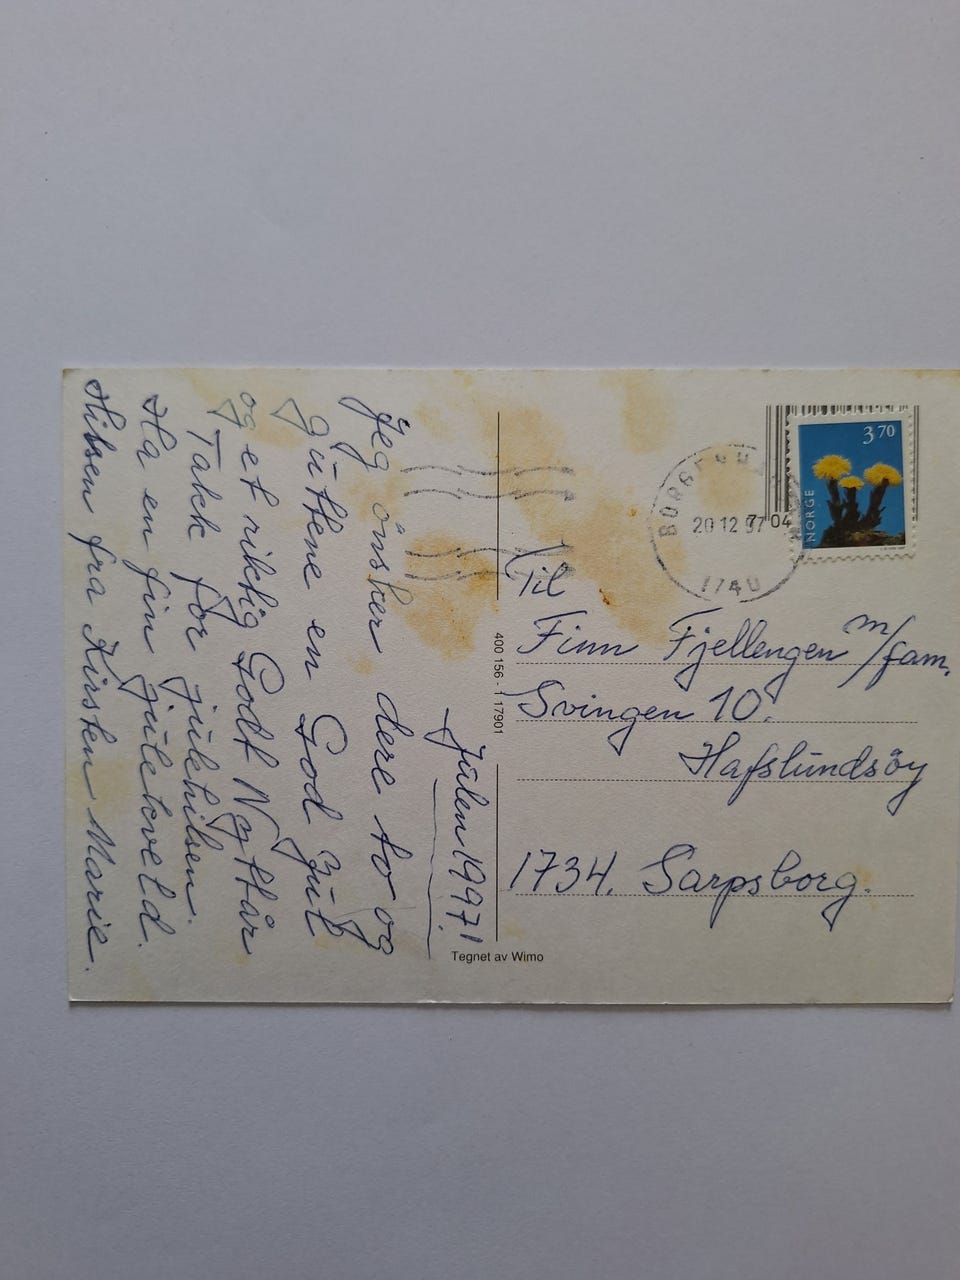 Julen 1997!
Jeg önsker dere to og
gŭttene en God Jŭl
og et riktig Godt Nyttår
Takk for jŭlehilsen.
Ha en fin jŭlekveld.
Hilsen fra Kirsten Marie.
400 156 - 1 17901
Tegnet av Wimo
20 12 97 04
1740
NORGE
3 70
Til
Finn Fjellengen m/fam.
Svingen 10.
Hafslŭndsöy
1734. Sarpsborg.